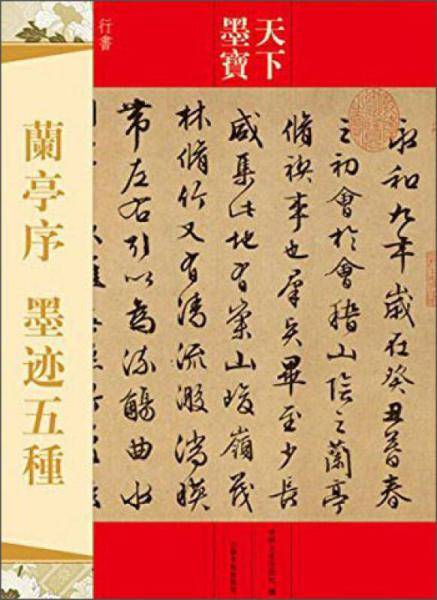 天下
墨寶
行書
永和九年歲在癸丑暮春
之初會於會稽山陰之蘭亭
脩禊事也群賢畢至少長
咸集此地有崇山峻嶺茂
林脩竹又有清流激湍暎
帶左右引以為流觴曲水
蘭亭序 墨迹五種